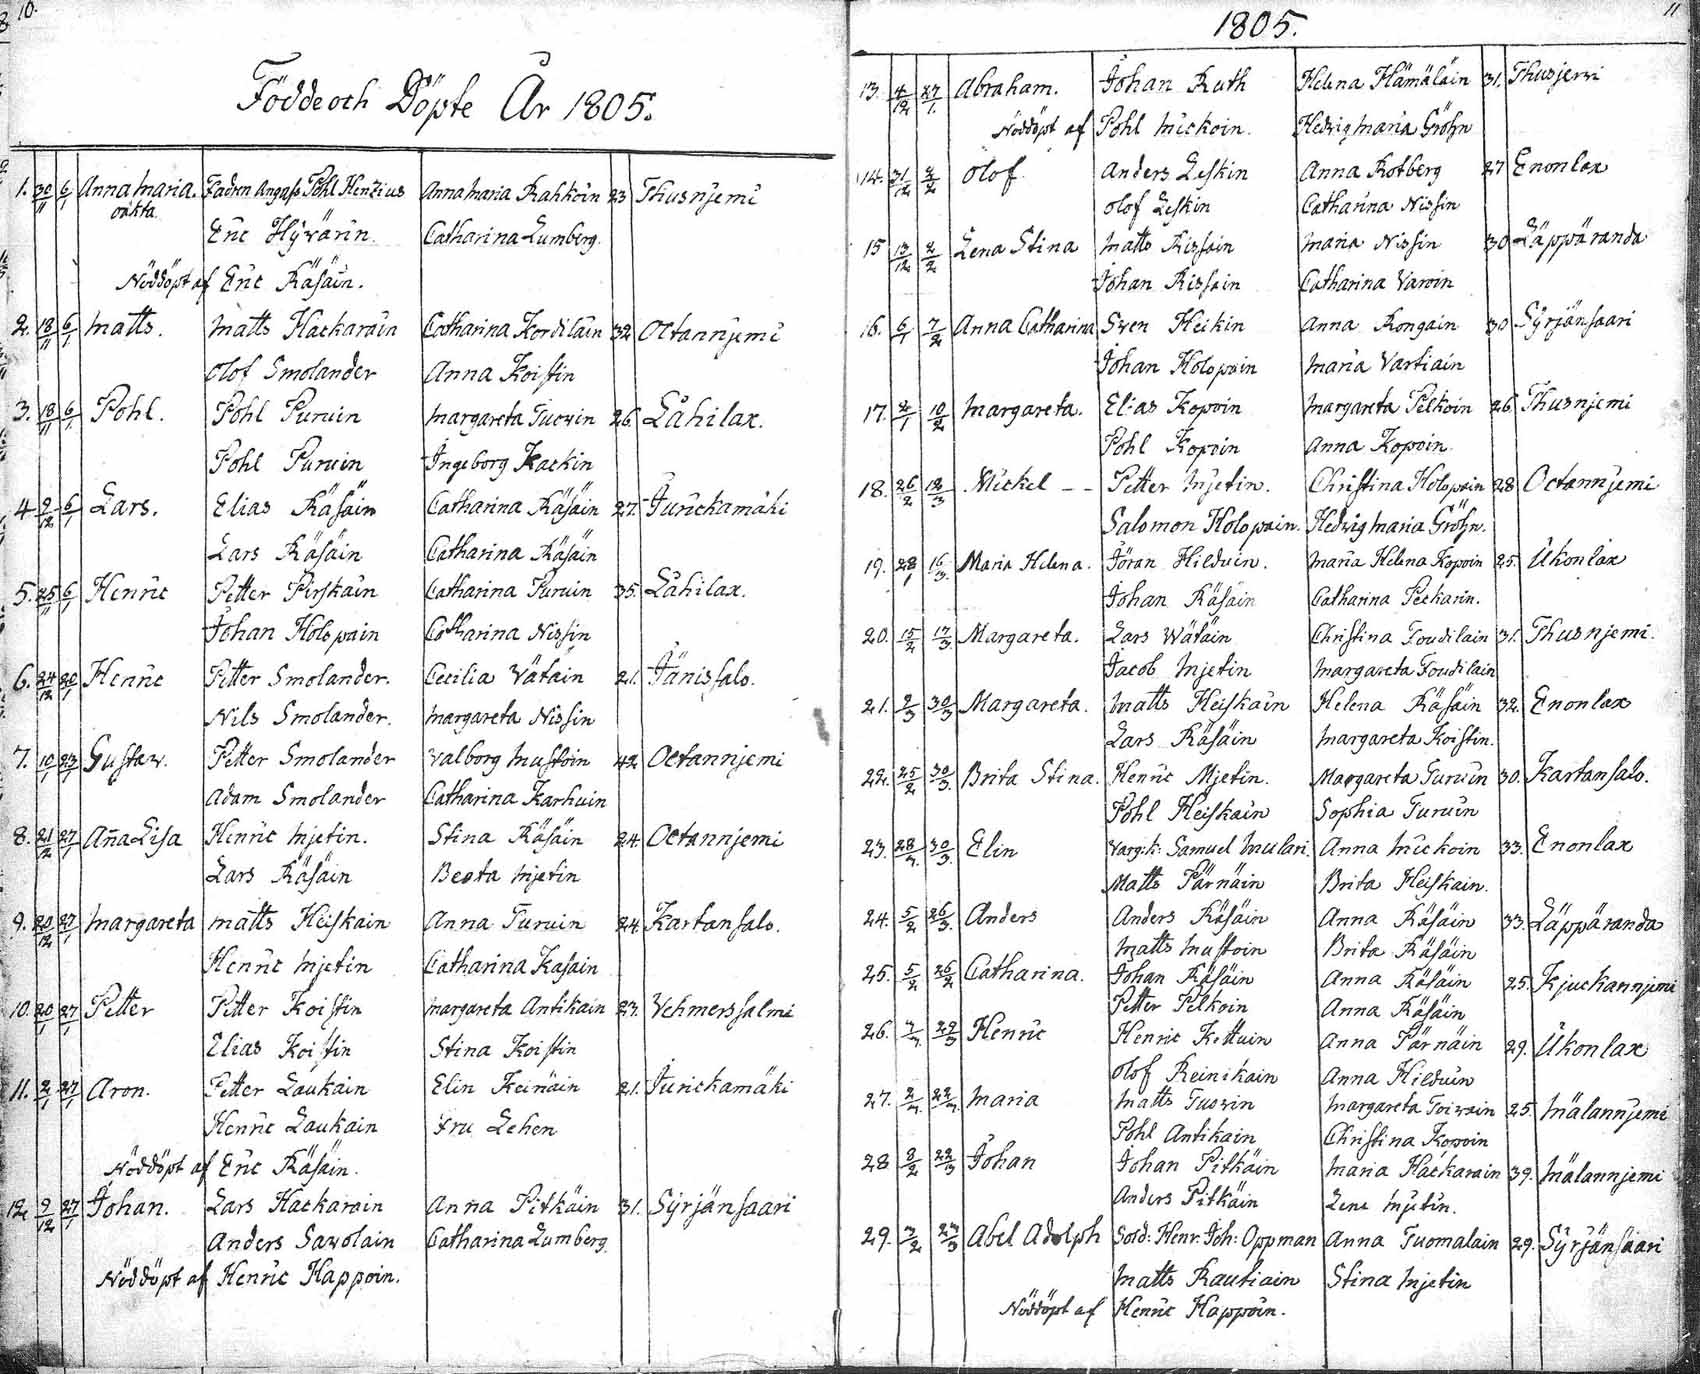 10.
Födde och Döpte År 1805.
1. 30/11 6/1 Anna Maria. Fadren Angass Pohl Henzius Anna Maria Rahkoin 23 Thusnjemi
oäkta. Eric Hyvärin. Catharina Lumberg.
Nöddöpt af Eric Räsäin.
2. 18/11 6/1 Matts. Matts Hackarain Catharina Kordilain 32 Octannjemi
Olof Smolander Anna Koistin
3. 18/11 6/1 Pohl. Pohl Puruin Margareta Tuovin 26. Lähilax.
Pohl Puruin Ingeborg Kackin
4 9/12 6/1 Lars. Elias Räsäin Catharina Räsäin 27. Jurickamäki
Lars Räsäin Catharina Räsäin
5. 25/11 6/1 Henric Petter Pirskain Catharina Puruin 35. Lähilax.
Johan Holopain Catharina Nissin
6. 24/12 20/1 Henric Petter Smolander. Cecilia Vätäin 21. Jänissalo.
Nils Smolander. Margareta Nissin
7. 10/1 23/1 Gustav. Petter Smolander Valborg Mustoin 42 Octannjemi
Adam Smolander Catharina Karhuin
8. 21/12 27/1 Aña Lisa Henric Mjetin. Stina Räsäin 24. Octannjemi
Lars Räsäin Beata Mjetin
9. 20/12 27/1 Margareta Matts Heiskain Anna Turuin 24. Kartansalo.
Henric Mjetin Catharina Kasain
10. 20/1 27/1 Petter Petter Koistin Margareta Antikain 23. Vehmerssalmi
Elias Koistin Stina Koistin
11. 2/1 27/1 Aron. Petter Laukain Elin Keinäin 21. Jurickamäki
Henric Laukain Fru Lehen
Nöddöpt af Eric Räsäin.
12. 9/12 27/1 Johan. Lars Hackarain Anna Pitkäin 31. Syrjänsaari
Anders Savolain Catharina Lumberg.
Nöddöpt af Henric Happoin.
11
1805.
13. 4/12 27/1. Abraham. Johan Ruth Helena Hämäläin 31. Thusjervi
Nöddöpt af Pohl Mickoin. Hedvig Maria Gröhn
14. 31/12 2/2 Olof. Anders Leskin Anna Rotberg 27 Enonlax
Olof Leskin Catharina Nissin
15 13/12 2/2 Lena Stina Matts Rissain Maria Nissin 30 Läppäranda
Johan Rissain Catharina Varoin
16. 6/1 7/2 Anna Catharina Sven Heikin Anna Rongain 30 Syrjänsaari
Johan Holopain Maria Vartiain
17. 2/1 10/2 Margareta. Elias Kopoin Margareta Pelkoin 26. Thusnjemi
Pohl Kopoin Anna Kopoin.
18. 26/2 12/3 Mickel -- Petter Mjetin. Christina Holopain 28 Octannjemi
Salomon Holopain. Hedvig Maria Gröhn.
19. 28/1 16/3. Maria Helena. Jöran Hilduin. Maria Helena Kopoin 25. Ukonlax
Johan Räsäin Catharina Peckarin.
20. 15/2 17/3. Margareta. Lars Wätäin Christina Toudilain 31. Thusnjemi.
Jacob Mjetin Margareta Toudilain
21. 9/3 30/3 Margareta. Matts Heiskain Helena Räsäin 32. Enonlax
Lars Räsäin Margareta Koistin.
22. 25/2 30/3. Brita Stina. Henric Mjetin. Margareta Turuin 30. Kartansalo.
Pohl Heiskain Sophia Turuin
23. 28/2 30/3. Elin Varg:k: Samuel Mulari. Anna Mickoin 33. Enonlax
Matts Pärnäin Brita Heiskain.
24. 5/2 26/3. Anders Anders Räsäin Anna Räsäin 33. Läppäranda
Matts Mustoin Brita Räsäin
25. 5/2 26/2 Catharina. Johan Räsäin Anna Räsäin 25. Kjuckannjemi
Petter Pelkoin Anna Räsäin
26. 22/3 Henric Henric Kettuin Anna Pärnäin 29. Ukonlax
Olof Reinikain Anna Hilduin
27. Maria Matts Tuovin Margareta Toivain 25. Mälannjemi
Pohl Antikain Christina Kopoin
28 8/2 22/3 Johan Johan Pitkäin Maria Hackarain 39. Mälannjemi
Anders Pitkäin Lena Mjetin.
29. 3/2 23/3 Abel Adolph Sold: Henr: Joh: Oppman Anna Tuomalain 29. Syrjänsaari
Matts Rautiain Stina Mjetin
Nöddöpt af Henric Happoin.